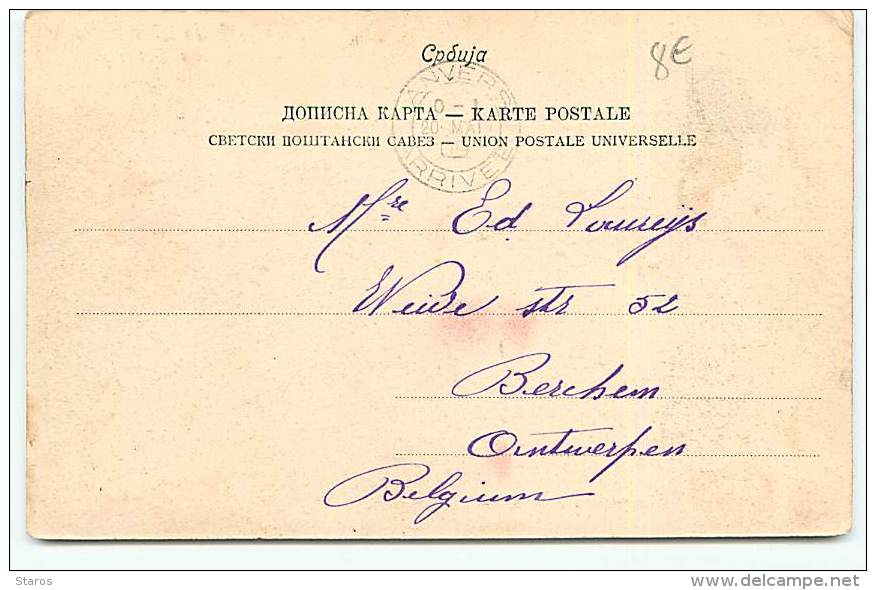 Србија
8€
ANVERS
0 - 1
20 MAI
ARRIVEE
ДОПИСНА КАРТА — KARTE POSTALE
СВЕТСКИ ПОШТАНСКИ САВЕЗ – UNION POSTALE UNIVERSELLE
Mre Ed
Weide str 52
Berchem
Antwerpen
Belgium
Staros
delcampe.net